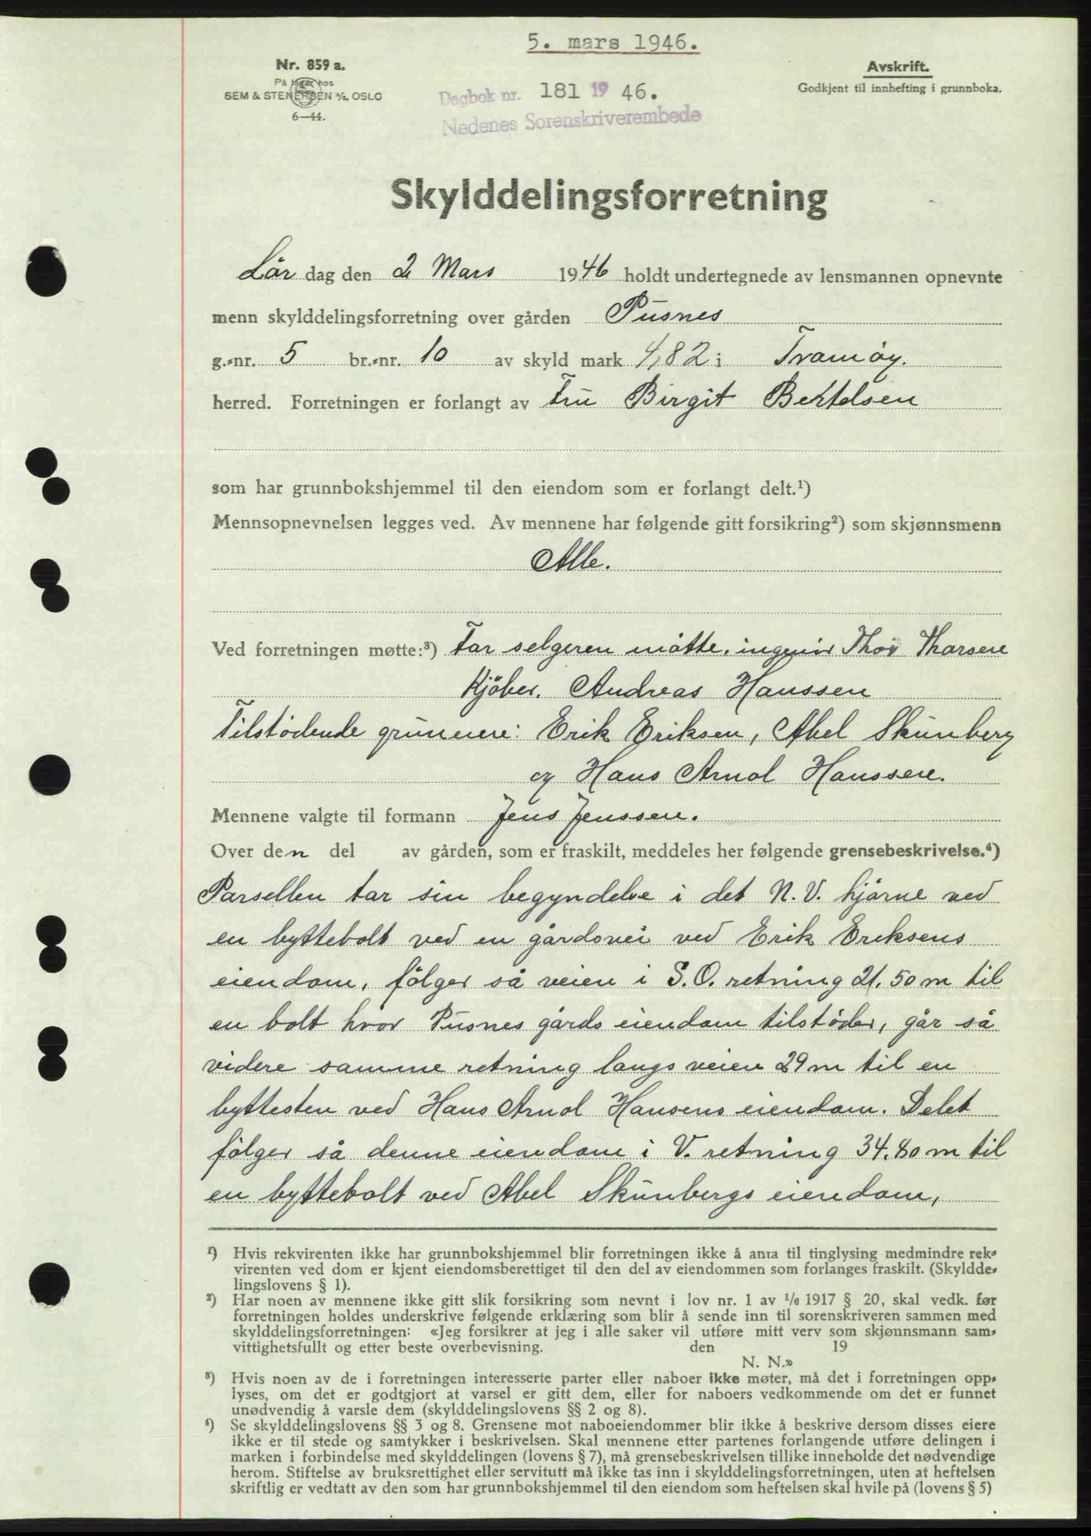 5. mars 1946.
Nr. 859 a.
På lager hos
SEM & STENERSEN A/S. OSLO
6—44.
Avskrift.
Godkjent til innhefting i grunnboka.
Dagbok nr. 181 19 46.
Nedenes Sorenskriverembede
Skylddelingsforretning
Lör dag den 2 Mars 1946 holdt undertegnede av lensmannen opnevnte
menn skylddelingsforretning over gården Pusnes
g.-nr. 5 br.-nr. 10 av skyld mark 4,82 i Tromöy.
herred. Forretningen er forlangt av Fru Birgit Bertelsen
som har grunnbokshjemmel til den eiendom som er forlangt delt.¹)
Mennsopnevnelsen legges ved. Av mennene har følgende gitt forsikring²) som skjønnsmenn
Alle.
Ved forretningen møtte:³) For selgeren mötte, ingeniör Thor Thorsen
Kjöber. Andreas Hanssen
Tilstödende grunneiere: Erik Eriksen, Abel Skunberg
og Hans Arnol Hanssen.
Mennene valgte til formann Jens Jenssen.
Over den del av gården, som er fraskilt, meddeles her følgende grensebeskrivelse.⁴)
Parsellen tar sin begyndelse i det N.V. hjörne ved
en byttebolt ved en gårdsvei ved Erik Eriksens
eiendom, fölger så veien i S.O. retning 21.50 m til
en bolt hvor Pusnes gårds eiendom tilstöder, går så
videre samme retning langs veien 29 m til en
byttesten ved Hans Arnol Hansens eiendom. Delet
fölger så denne eiendom i V. retning 34.80 m til
en byttebolt ved Abel Skunbergs eiendom,
¹) Hvis rekvirenten ikke har grunnbokshjemmel blir forretningen ikke å anta til tinglysing medmindre rek-
virenten ved dom er kjent eiendomsberettiget til den del av eiendommen som forlanges fraskilt. (Skyldde-
lingslovens § 1).
²) Har noen av mennene ikke gitt slik forsikring som nevnt i lov nr. 1 av ¹/₆ 1917 § 20, skal vedk. før
forretningen holdes underskrive følgende erklæring som blir å sende inn til sorenskriveren sammen med
skylddelingsforretningen: «Jeg forsikrer at jeg i alle saker vil utføre mitt verv som skjønnsmann sam-
vittighetsfullt og etter beste overbevisning. den 19
N. N.»
³) Hvis noen av de i forretningen interesserte parter eller naboer ikke møter, må det i forretningen opp-
lyses, om det er godtgjort at varsel er gitt dem, eller for naboers vedkommende om det er funnet
unødvendig å varsle dem (skylddelingslovens §§ 2 og 8).
⁴) Se skylddelingslovens §§ 3 og 8. Grensene mot naboeiendommer blir ikke å beskrive dersom disses eiere
ikke er til stede og samtykker i beskrivelsen. Skal mennene etter partenes forlangende utføre delingen i
marken i forbindelse med skylddelingen (lovens § 7), må grensebeskrivelsen tillike inneholde det nødvendige
herom. Stiftelse av bruksrettighet eller servitutt må ikke tas inn i skylddelingsforretningen, uten at heftelsen
skriftlig er vedtatt av den som har grunnbokshjemmel til den eiendom som heftelsen skal hvile på (lovens § 5)